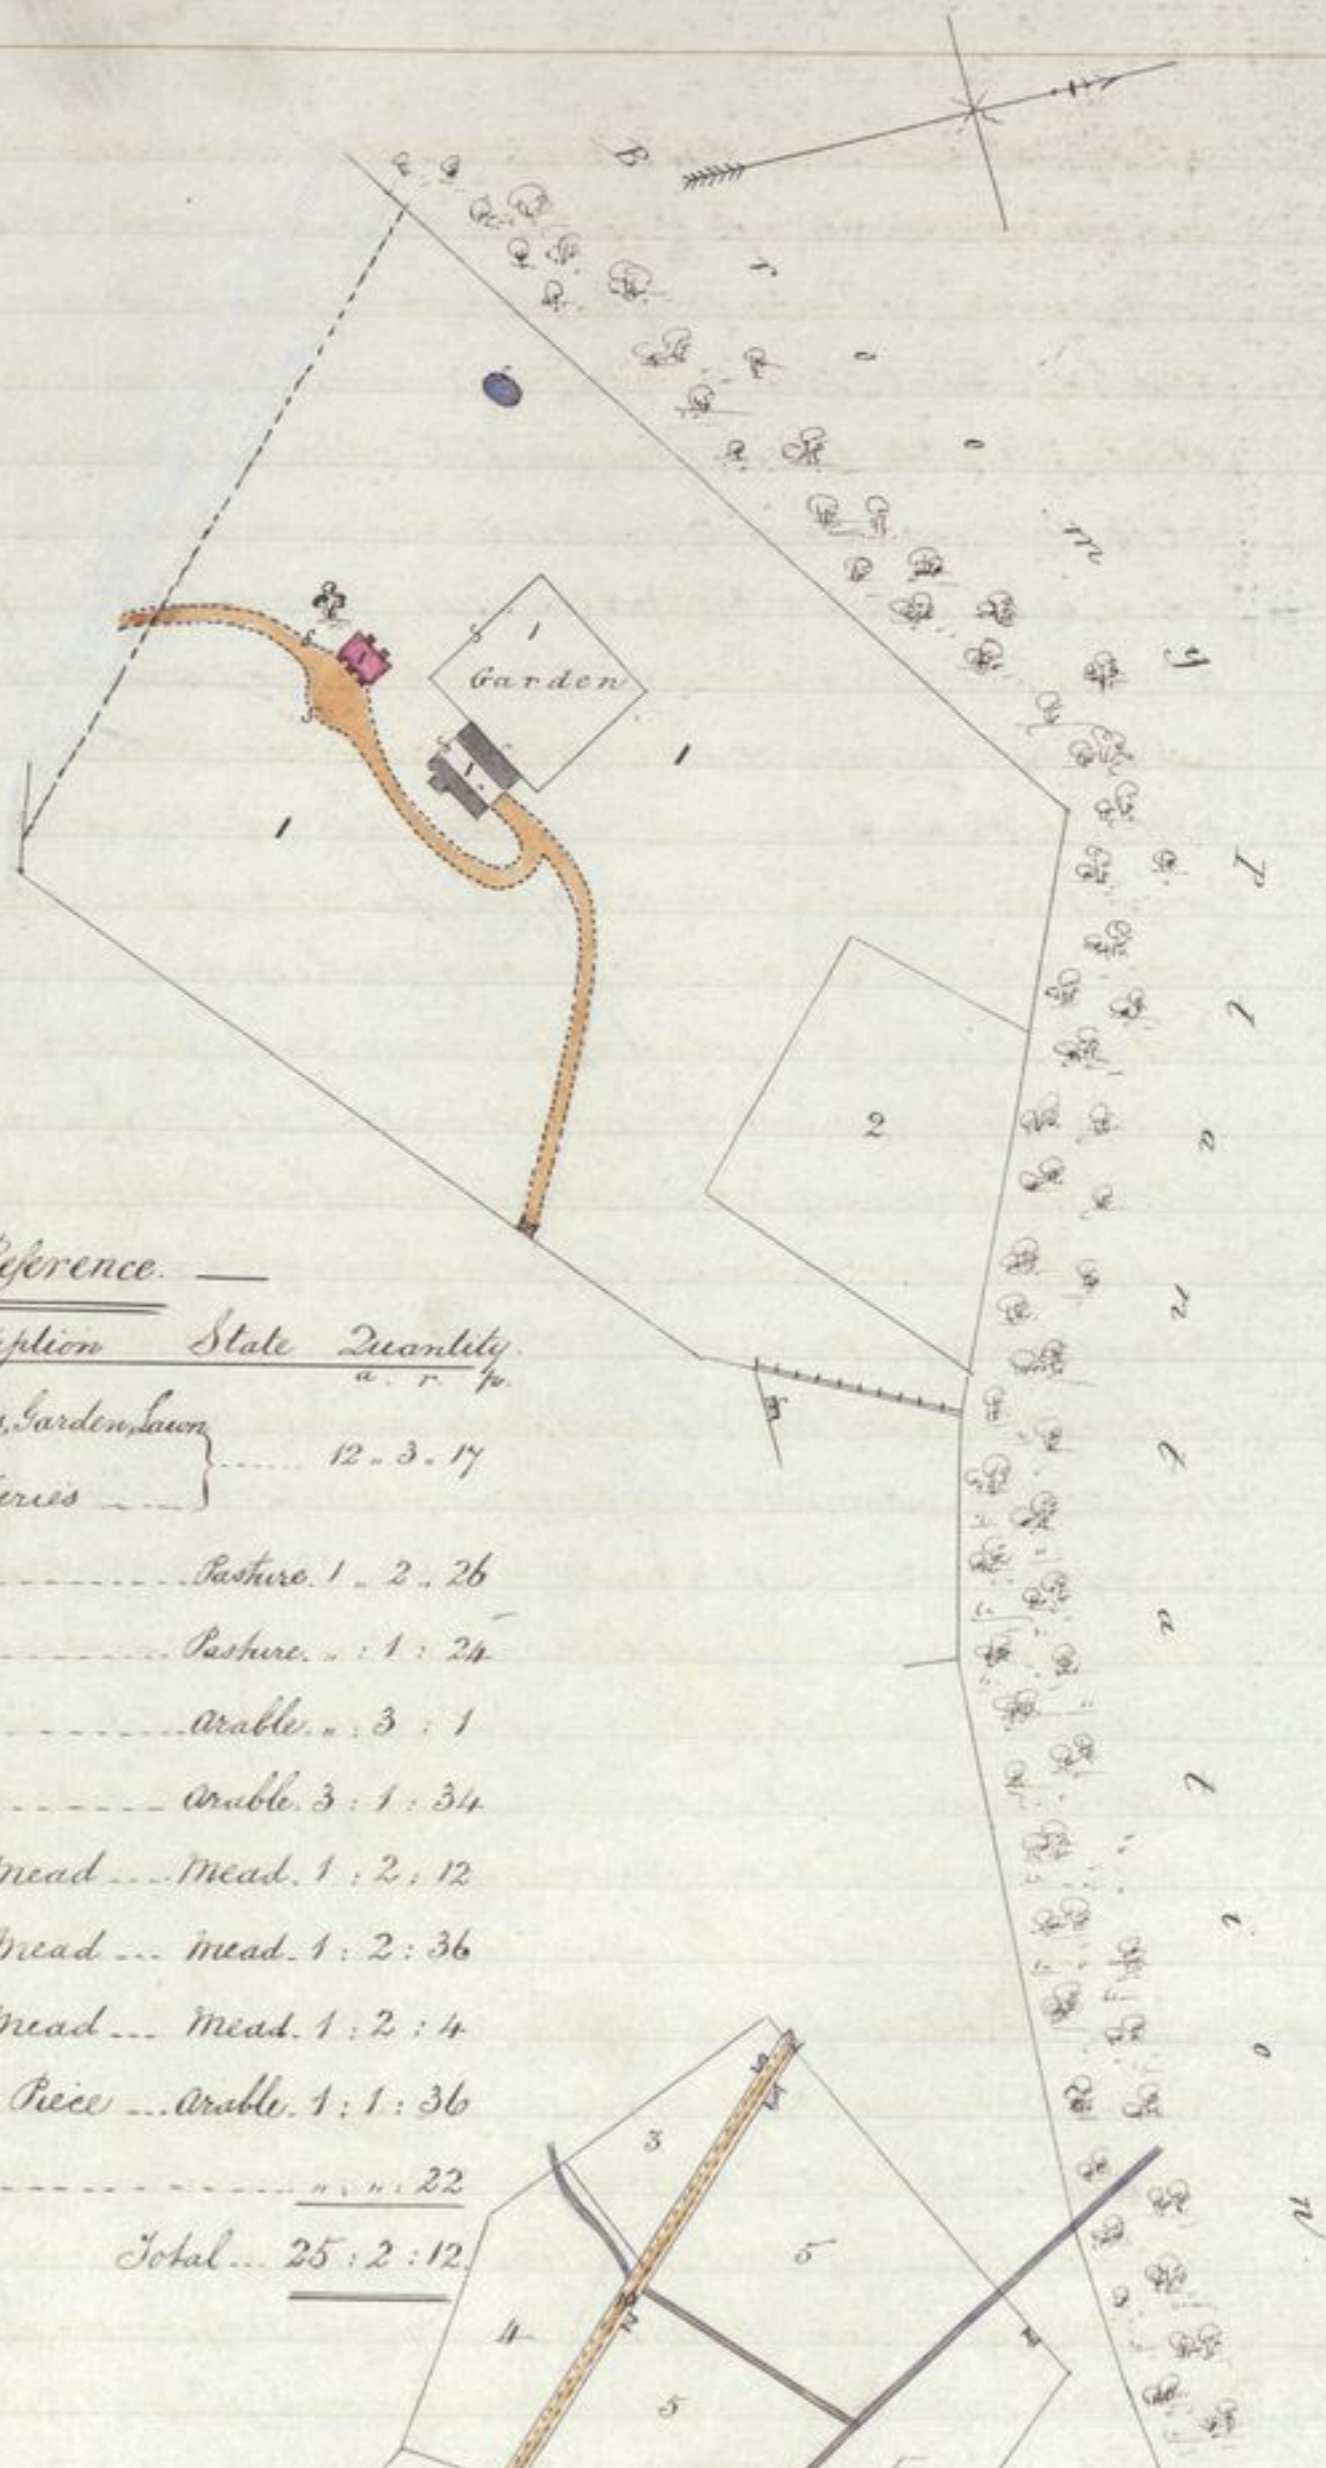 Broomy Plantation
1
Garden
1
1
1
2
Reference.
ription State Quantity.
a. r. p.
s, Garden, Lawn
12 .. 3 .. 17
eries
Pasture. 1 .. 2 .. 26
Pasture. .. : 1 : 24
Arable. .. : 3 : 1
Arable. 3 : 1 : 34
Mead Mead. 1 : 2 : 12
Mead Mead. 1 : 2 : 36
Mead Mead. 1 : 2 : 4
Piece Arable. 1 : 1 : 36
.. : .. : 22
Total 25 : 2 : 12
3
5
4
5